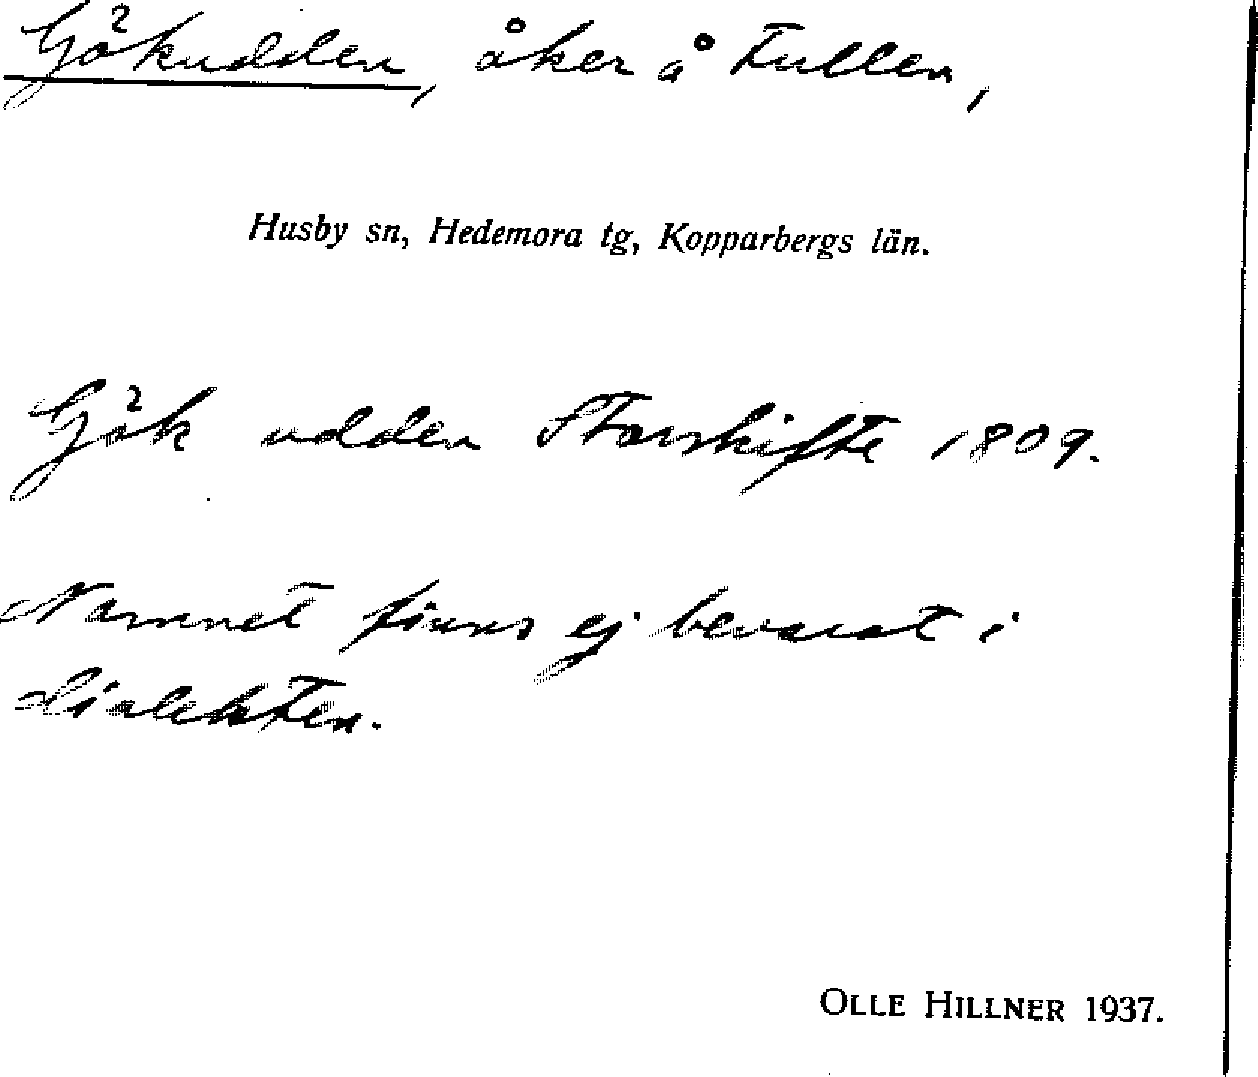 Gökudden, åker å Tullen,
Husby sn, Hedemora tg, Kopparbergs län.
Gök udden Storskifte 1809.
Namnet finns ej bevarat i
dialekten.
OLLE HILLNER 1937.